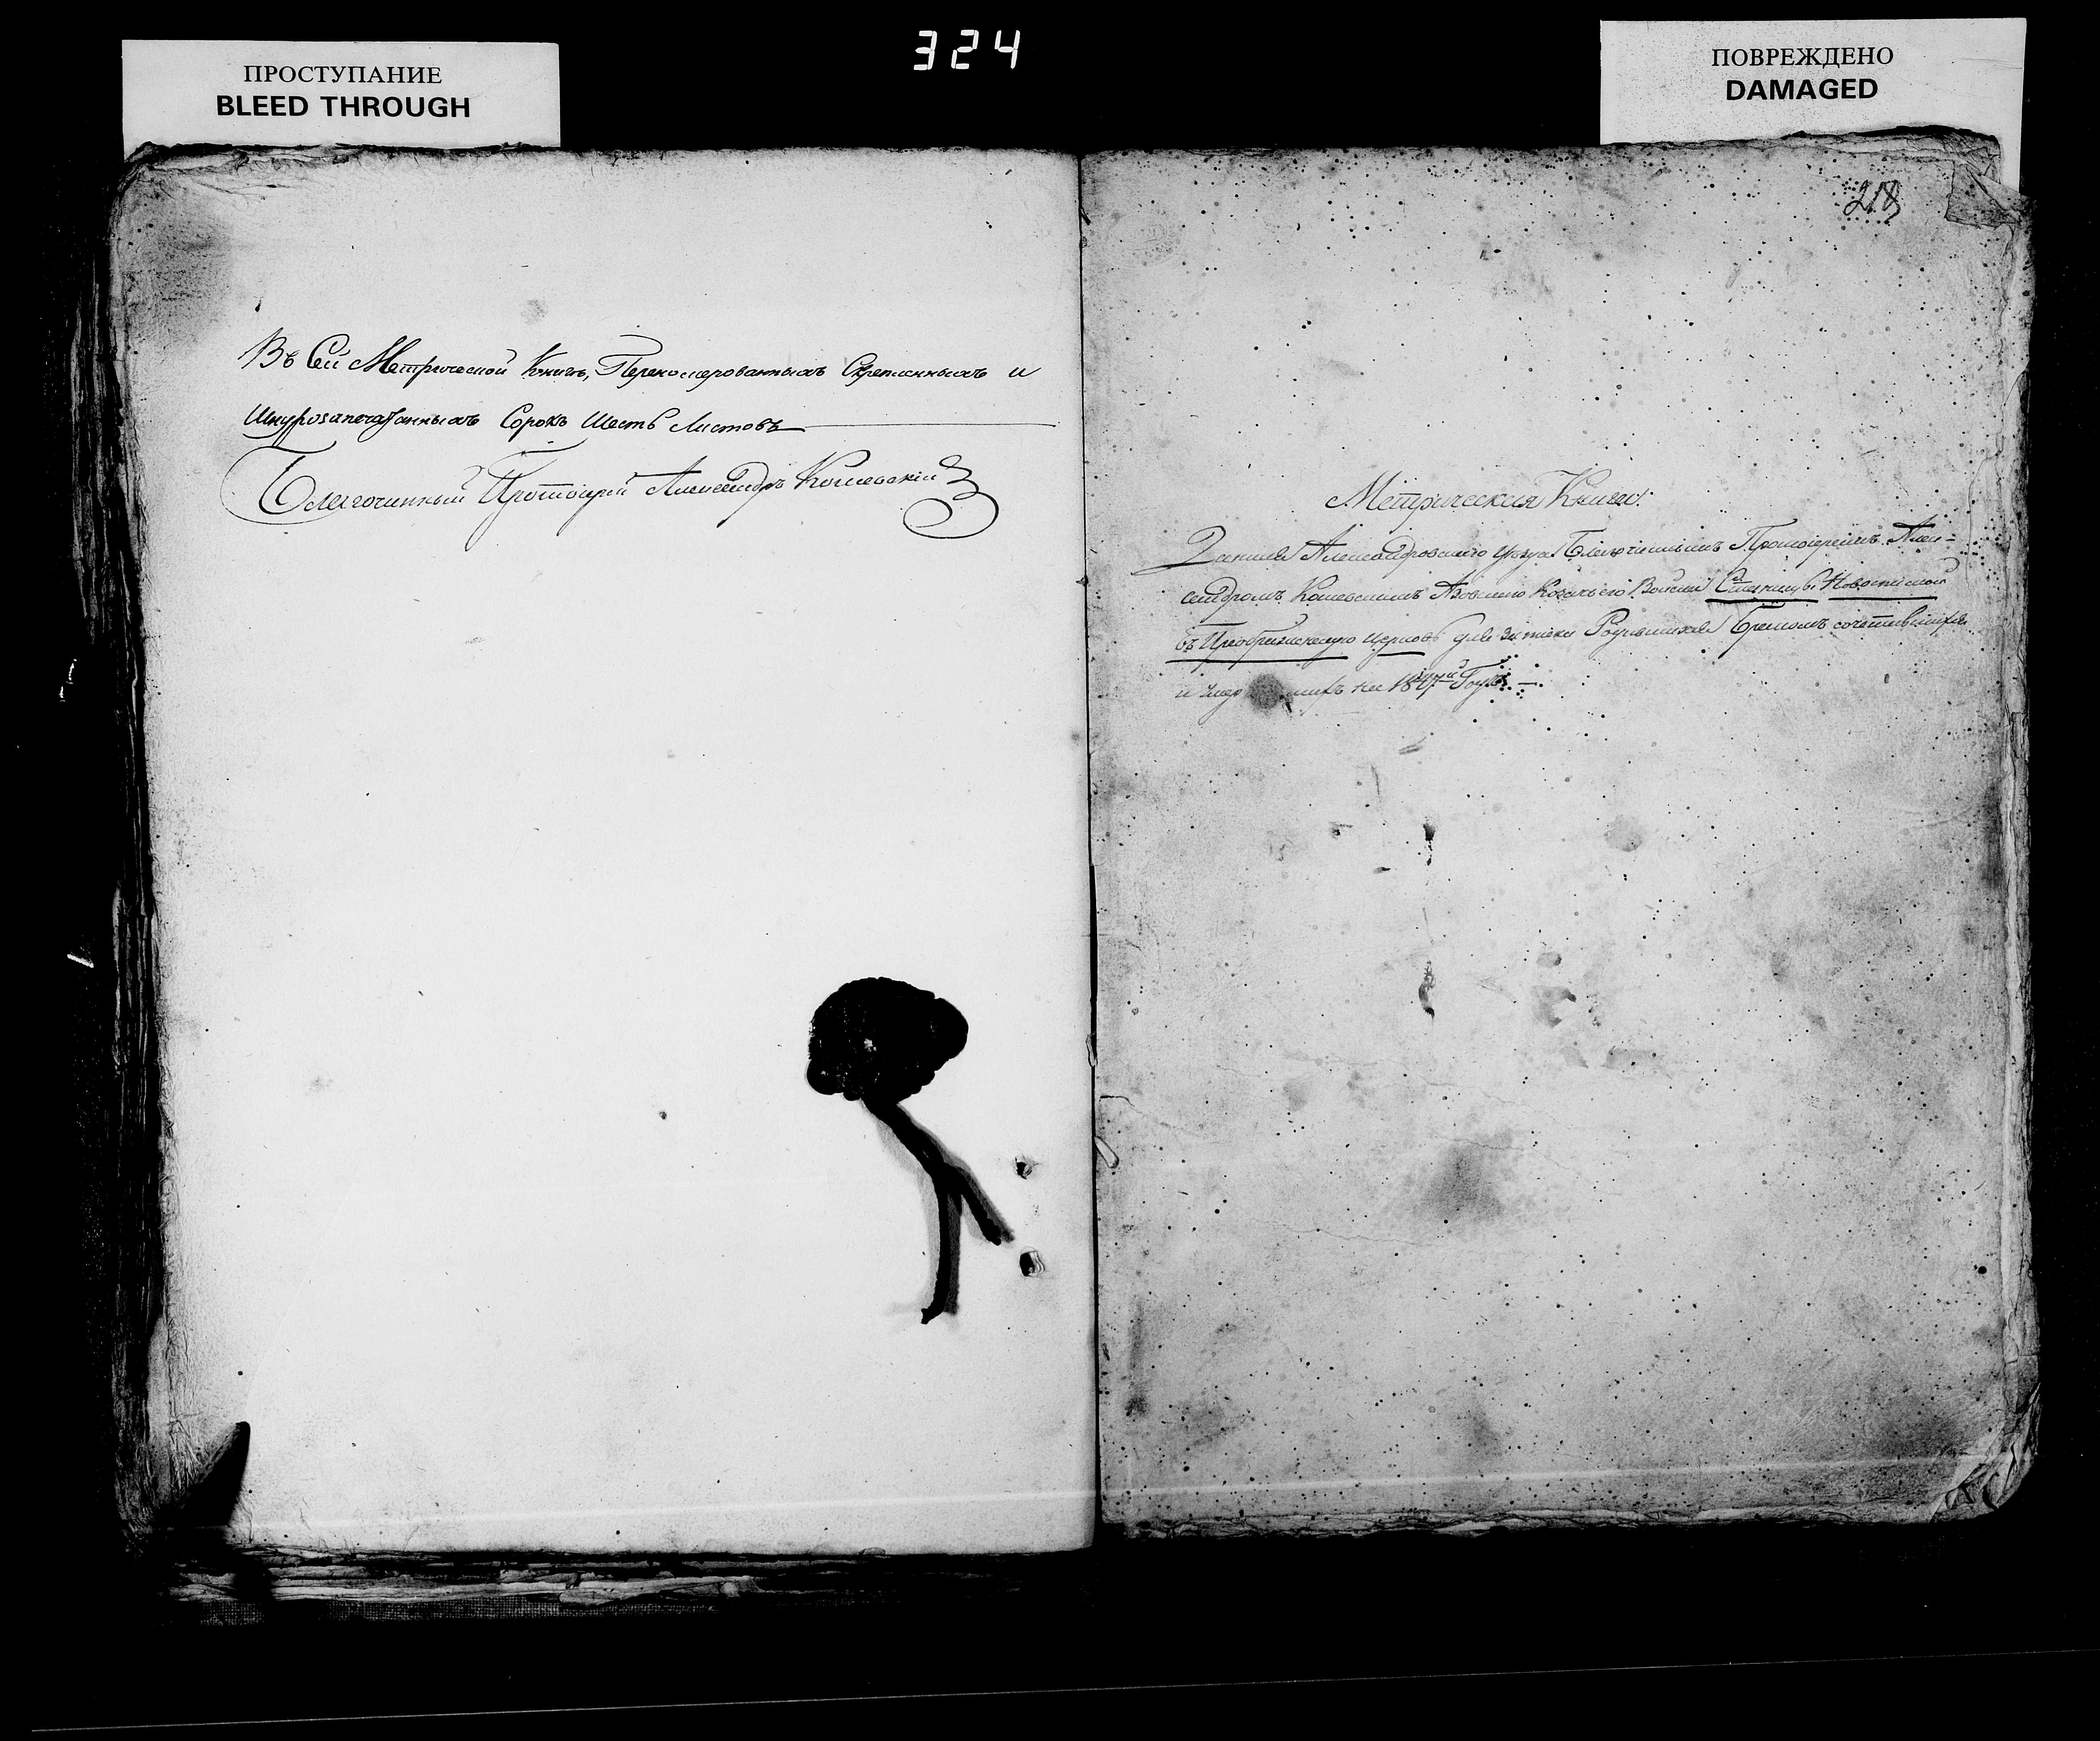 ПРОСТУПАНИЕ
BLEED THROUGH
324
ПОВРЕЖДЕНО
DAMAGED
218
Въ Сей Метрической Книгѣ, Переномерованныхъ Скрепленныхъ и
Шнурозапечатанныхъ Сорокъ Шесть Листовъ
Благочинный Протоіерей Александръ Кошевскій
Метрическая Книга
Данная Александровскаго уѣзда Благочиннымъ Протоіереемъ Алек-
сандромъ Кошевскимъ Азовскаго Козачьего Войска Станицы Новоспаской
въ Преображенскую церковь для записки Родившихся Бракомъ сочетавшихся
и умер шихъ на 1847й Годъ